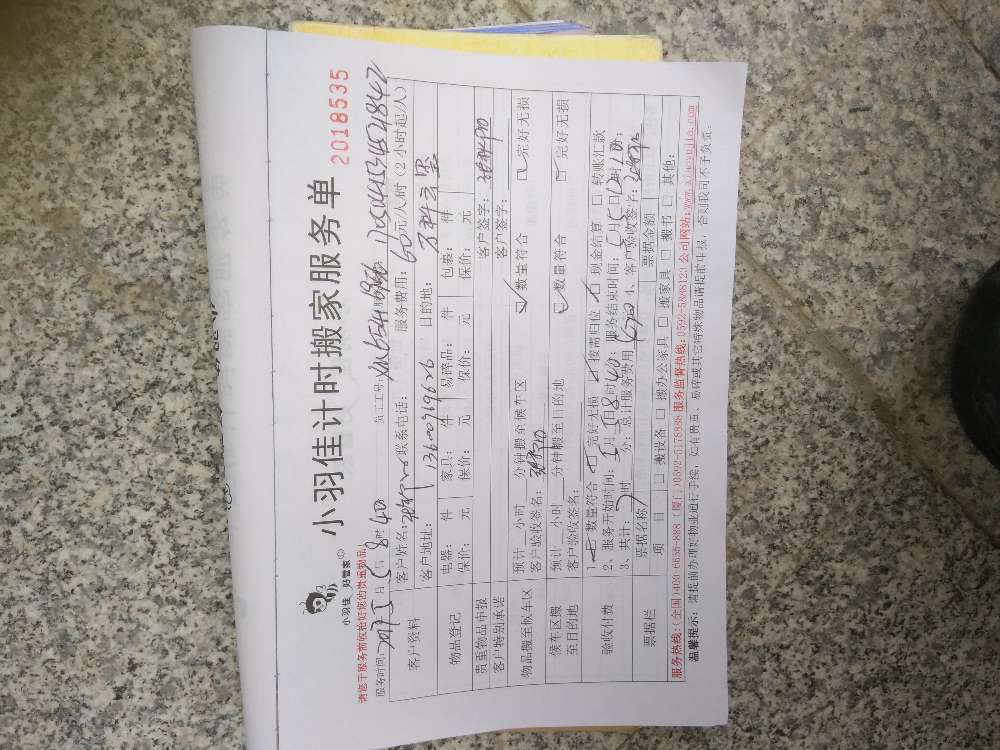 小羽佳计时搬家服务单
2018535
小羽佳 好管家
请您于服务前收拾好您的贵重物品
服务时间: 2017 年 5 月 5 日 8 时 40 员工工号:
客户资料 客户姓名: 联系电话: 服务费用: 60 元/人/时 (2小时起/人)
客户地址: 13600969626 目的地: 万科云玺
物品登记 电器: 件 家具: 件 易碎品: 件 包裹: 件
保价: 元 保价: 元 保价: 元 保价: 元
贵重物品申报 客户签字:
客户特别承诺 客户签字:
物品搬至候车区 预计 小时 分钟搬至候车区 数量符合 完好无损
客户验收签名:
候车区搬至目的地 预计 小时 分钟搬至目的地 数量符合 完好无损
客户验收签名:
验收付费 1、 数量符合 完好无损 按需归位 现金结算 转账汇款
2、服务开始时间: 5 月 5 日 8 时 40 服务结束时间: 5 月 5 日 12 时
3、共计: 时 分; 总计服务费用 4、客户验收签字:
票据栏 票据名称 票据金额
项目 搬设备 搬办公家具 搬家具 搬书 其他:
服务热线:(全国)400-6656-888 (厦门)0592-5178888 服务监督热线:0592-5888123 公司网站:www.xiaoyujia.com
温馨提示: 请提前办理好物业通行手续, 如有贵重、易碎或其它特殊物品请提前申报, 否则我司不予负责。